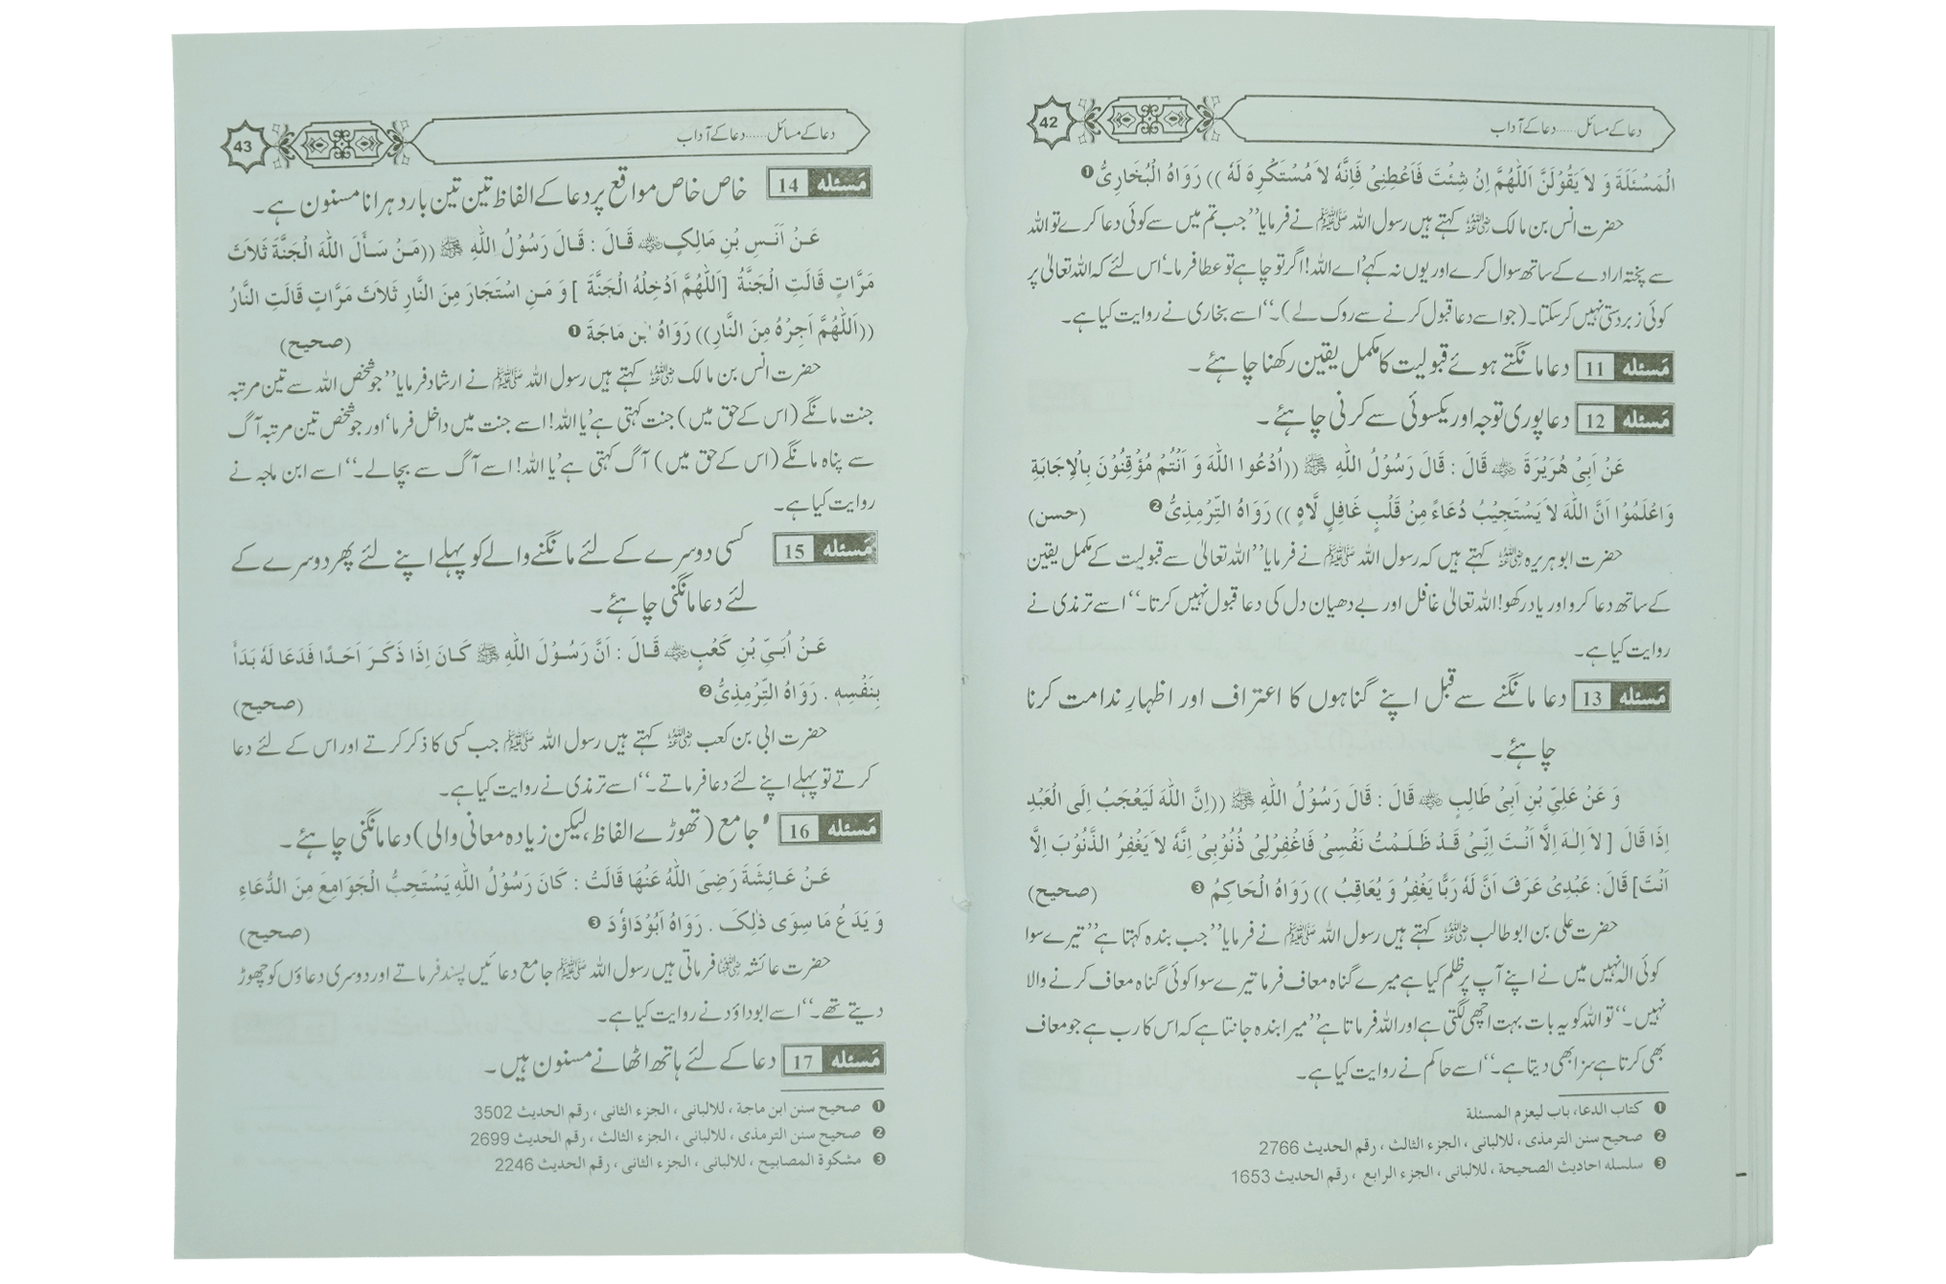 42
دعا کے مسائل......دعا کے آداب
الْمَسْئَلَةَ وَ لاَ يَقُوْلَنَّ اَللّٰهُمَّ اِنْ شِئْتَ فَاَعْطِنِىْ فَاِنَّهٗ لاَ مُسْتَكْرِهَ لَهٗ )) رَوَاهُ الْبُخَارِىُّ ❶
حضرت انس بن مالک رضی اللہ عنہ کہتے ہیں رسول اللہ ﷺ نے فرمایا ’’جب تم میں سے کوئی دعا کرے تو اللہ
سے پختہ ارادے کے ساتھ سوال کرے اور یوں نہ کہے ’اے اللہ! اگر تو چاہے تو عطا فرما۔‘ اس لئے کہ اللہ تعالیٰ پر
کوئی زبردستی نہیں کر سکتا۔ (جو اسے دعا قبول کرنے سے روک لے)۔‘‘ اسے بخاری نے روایت کیا ہے۔
مَسئله 11 دعا مانگتے ہوئے قبولیت کا مکمل یقین رکھنا چاہئے۔
مَسئله 12 دعا پوری توجہ اور یکسوئی سے کرنی چاہئے۔
عَنْ اَبِىْ هُرَيْرَةَ رضی اللہ عنہ قَالَ : قَالَ رَسُوْلُ اللّٰهِ ﷺ ((اُدْعُوا اللّٰهَ وَ اَنْتُمْ مُوْقِنُوْنَ بِالْاِجَابَةِ
وَاعْلَمُوْا اَنَّ اللّٰهَ لاَ يَسْتَجِيْبُ دُعَاءً مِنْ قَلْبٍ غَافِلٍ لَّاهٍ )) رَوَاهُ التِّرْمِذِىُّ ❷ (حسن)
حضرت ابوہریرہ رضی اللہ عنہ کہتے ہیں کہ رسول اللہ ﷺ نے فرمایا ’’اللہ تعالیٰ سے قبولیت کے مکمل یقین
کے ساتھ دعا کرو اور یاد رکھو! اللہ تعالیٰ غافل اور بے دھیان دل کی دعا قبول نہیں کرتا۔‘‘ اسے ترمذی نے
روایت کیا ہے۔
مَسئله 13 دعا مانگنے سے قبل اپنے گناہوں کا اعتراف اور اظہارِ ندامت کرنا
چاہئے۔
وَ عَنْ عَلِىِّ بْنِ اَبِىْ طَالِبٍ رضی اللہ عنہ قَالَ : قَالَ رَسُوْلُ اللّٰهِ ﷺ ((اِنَّ اللّٰهَ لَيَعْجَبُ اِلَى الْعَبْدِ
اِذَا قَالَ [ لاَ اِلٰهَ اِلَّا اَنْتَ اِنِّىْ قَدْ ظَلَمْتُ نَفْسِىْ فَاغْفِرْلِىْ ذُنُوْبِىْ اِنَّهٗ لاَ يَغْفِرُ الذُّنُوْبَ اِلَّا
اَنْتَ] قَالَ : عَبْدِىْ عَرَفَ اَنَّ لَهٗ رَبًّا يَغْفِرُ وَ يُعَاقِبُ )) رَوَاهُ الْحَاكِمُ ❸ (صحيح)
حضرت علی بن ابوطالب رضی اللہ عنہ کہتے ہیں رسول اللہ ﷺ نے فرمایا ’’جب بندہ کہتا ہے ’’تیرے سوا
کوئی الٰہ نہیں میں نے اپنے آپ پر ظلم کیا ہے میرے گناہ معاف فرما تیرے سوا کوئی گناہ معاف کرنے والا
نہیں۔‘‘ تو اللہ کو یہ بات بہت اچھی لگتی ہے اور اللہ فرماتا ہے ’’میرا بندہ جانتا ہے کہ اس کا رب ہے جو معاف
بھی کرتا ہے سزا بھی دیتا ہے۔‘‘ اسے حاکم نے روایت کیا ہے۔
❶ كتاب الدعا، باب ليعزم المسئلة
❷ صحيح سنن الترمذى ، للالبانى ، الجزء الثالث ، رقم الحديث 2766
❸ سلسله احاديث الصحيحة ، للالبانى ، الجزء الرابع ، رقم الحديث 1653
43
دعا کے مسائل......دعا کے آداب
مَسئله 14 خاص خاص مواقع پر دعا کے الفاظ تین تین بار دہرانا مسنون ہے۔
عَنْ اَنَسِ بْنِ مَالِكٍ رضی اللہ عنہ قَالَ : قَالَ رَسُوْلُ اللّٰهِ ﷺ ((مَنْ سَأَلَ اللّٰهَ الْجَنَّةَ ثَلاَثَ
مَرَّاتٍ قَالَتِ الْجَنَّةُ [اَللّٰهُمَّ اَدْخِلْهُ الْجَنَّةَ ] وَ مَنِ اسْتَجَارَ مِنَ النَّارِ ثَلاَثَ مَرَّاتٍ قَالَتِ النَّارُ
((اَللّٰهُمَّ اَجِرْهُ مِنَ النَّارِ)) رَوَاهُ ابْن مَاجَةَ ❶ (صحيح)
حضرت انس بن مالک رضی اللہ عنہ کہتے ہیں رسول اللہ ﷺ نے ارشاد فرمایا ’’جو شخص اللہ سے تین مرتبہ
جنت مانگے (اس کے حق میں) جنت کہتی ہے ’یا اللہ! اسے جنت میں داخل فرما‘ اور جو شخص تین مرتبہ آگ
سے پناہ مانگے (اس کے حق میں) آگ کہتی ہے ’یا اللہ! اسے آگ سے بچالے۔‘‘ اسے ابن ماجہ نے
روایت کیا ہے۔
مَسئله 15 کسی دوسرے کے لئے مانگنے والے کو پہلے اپنے لئے پھر دوسرے کے
لئے دعا مانگنی چاہئے۔
عَنْ اُبَىِّ بْنِ كَعْبٍ رضی اللہ عنہ قَالَ : اَنَّ رَسُوْلَ اللّٰهِ ﷺ كَانَ اِذَا ذَكَرَ اَحَدًا فَدَعَا لَهٗ بَدَأَ
بِنَفْسِهٖ . رَوَاهُ التِّرْمِذِىُّ ❷ (صحيح)
حضرت ابی بن کعب رضی اللہ عنہ کہتے ہیں رسول اللہ ﷺ جب کسی کا ذکر کرتے اور اس کے لئے دعا
کرتے تو پہلے اپنے لئے دعا فرماتے۔‘‘ اسے ترمذی نے روایت کیا ہے۔
مَسئله 16 جامع (تھوڑے الفاظ، لیکن زیادہ معانی والی) دعا مانگنی چاہئے۔
عَنْ عَائِشَةَ رَضِىَ اللّٰهُ عَنْهَا قَالَتْ : كَانَ رَسُوْلُ اللّٰهِ يَسْتَحِبُّ الْجَوَامِعَ مِنَ الدُّعَاءِ
وَ يَدَعُ مَا سِوَى ذٰلِكَ . رَوَاهُ اَبُوْدَاوٗدَ ❸ (صحيح)
حضرت عائشہ رضی اللہ عنہا فرماتی ہیں رسول اللہ ﷺ جامع دعائیں پسند فرماتے اور دوسری دعاؤں کو چھوڑ
دیتے تھے۔‘‘ اسے ابوداؤد نے روایت کیا ہے۔
مَسئله 17 دعا کے لئے ہاتھ اٹھانے مسنون ہیں۔
❶ صحيح سنن ابن ماجة ، للالبانى ، الجزء الثانى ، رقم الحديث 3502
❷ صحيح سنن الترمذى ، للالبانى ، الجزء الثالث ، رقم الحديث 2699
❸ مشكوة المصابيح ، للالبانى ، الجزء الثانى ، رقم الحديث 2246